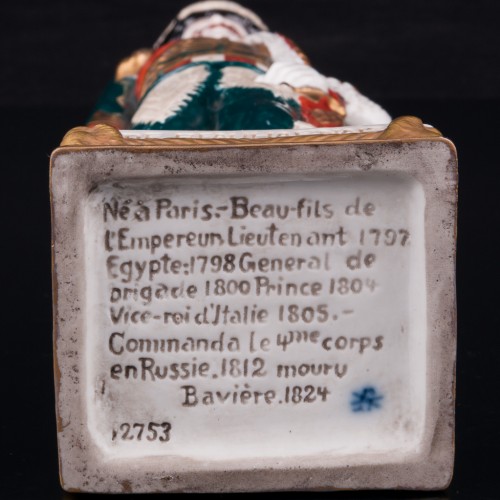 Né à Paris.-Beau-fils de
l'Empereur. Lieutenant 1797
Egypte:1798 General de
brigade 1800 Prince 1804
Vice-roi d'Italie 1805.-
Commanda le 4me corps
en Russie.1812 mouru
Bavière.1824
12753